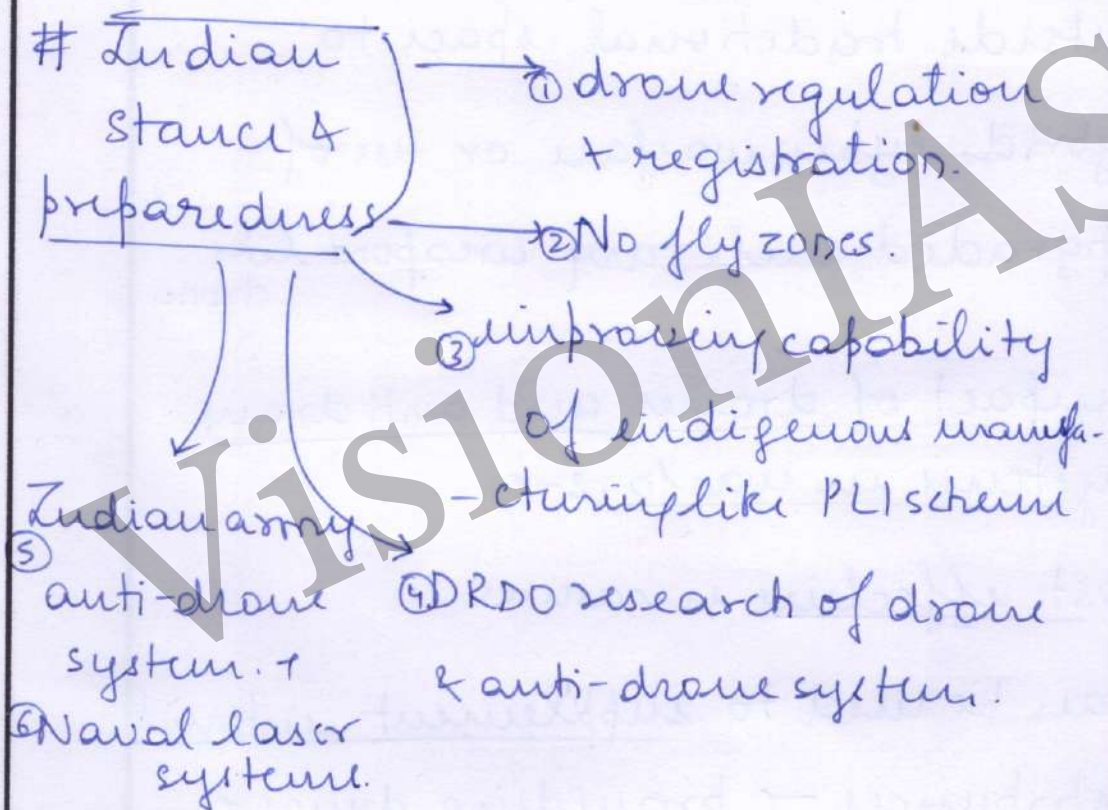 # Indian
stance &
preparedness
① drone regulation
+ registration.
② No fly zones.
③ improving capability
of indigenous manufa-
-cturing like PLI scheme
④ DRDO research of drone
& anti-drone system.
⑤ Indian army
anti-drone
system. +
⑥ Naval laser
systems.
VisionIAS